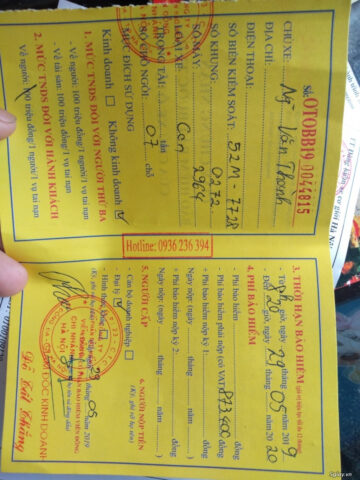 Số: OTOBB19 0044815
CHỦ XE: Ng Văn Thanh
ĐỊA CHỈ:
ĐIỆN THOẠI:
SỐ BIỂN KIỂM SOÁT: 52M - 7728
SỐ KHUNG: 0272
SỐ MÁY: 2964
LOẠI XE: Con
TRỌNG TẢI: tấn
SỐ CHỖ NGỒI: 07 chỗ
MỤC ĐÍCH SỬ DỤNG
Kinh doanh Không kinh doanh
1. MỨC TNDS ĐỐI VỚI NGƯỜI THỨ BA
- Về người: 100 triệu đồng/1 người/1 vụ tai nạn
- Về tài sản: 100 triệu đồng/1 vụ tai nạn
2. MỨC TNDS ĐỐI VỚI HÀNH KHÁCH
Về người: 100 triệu đồng/1 người/1 vụ tai nạn
Hotline: 0936 236 394
3. THỜI HẠN BẢO HIỂM
Từ giờ, ngày 29 tháng 05 năm 2019
Đến giờ, ngày 29 tháng 05 năm 2020
4. PHÍ BẢO HIỂM
Phí bảo hiểm đồng
Phí bảo hiểm phải nộp (có VAT): 873.400 đồng
Phí bảo hiểm nộp kỳ 1: đồng
Ngày nộp: (ngày tháng năm )
Phí bảo hiểm nộp kỳ 2: đồng
Ngày nộp: (ngày tháng năm )
5. NGƯỜI CẤP
Cán bộ doanh nghiệp
Đại lý
Hình thức
6. NGƯỜI NỘP TIỀN
(Ký, ghi rõ họ tên)
05 năm 2019
HÀ NỘI
GIÁM ĐỐC KINH DOANH